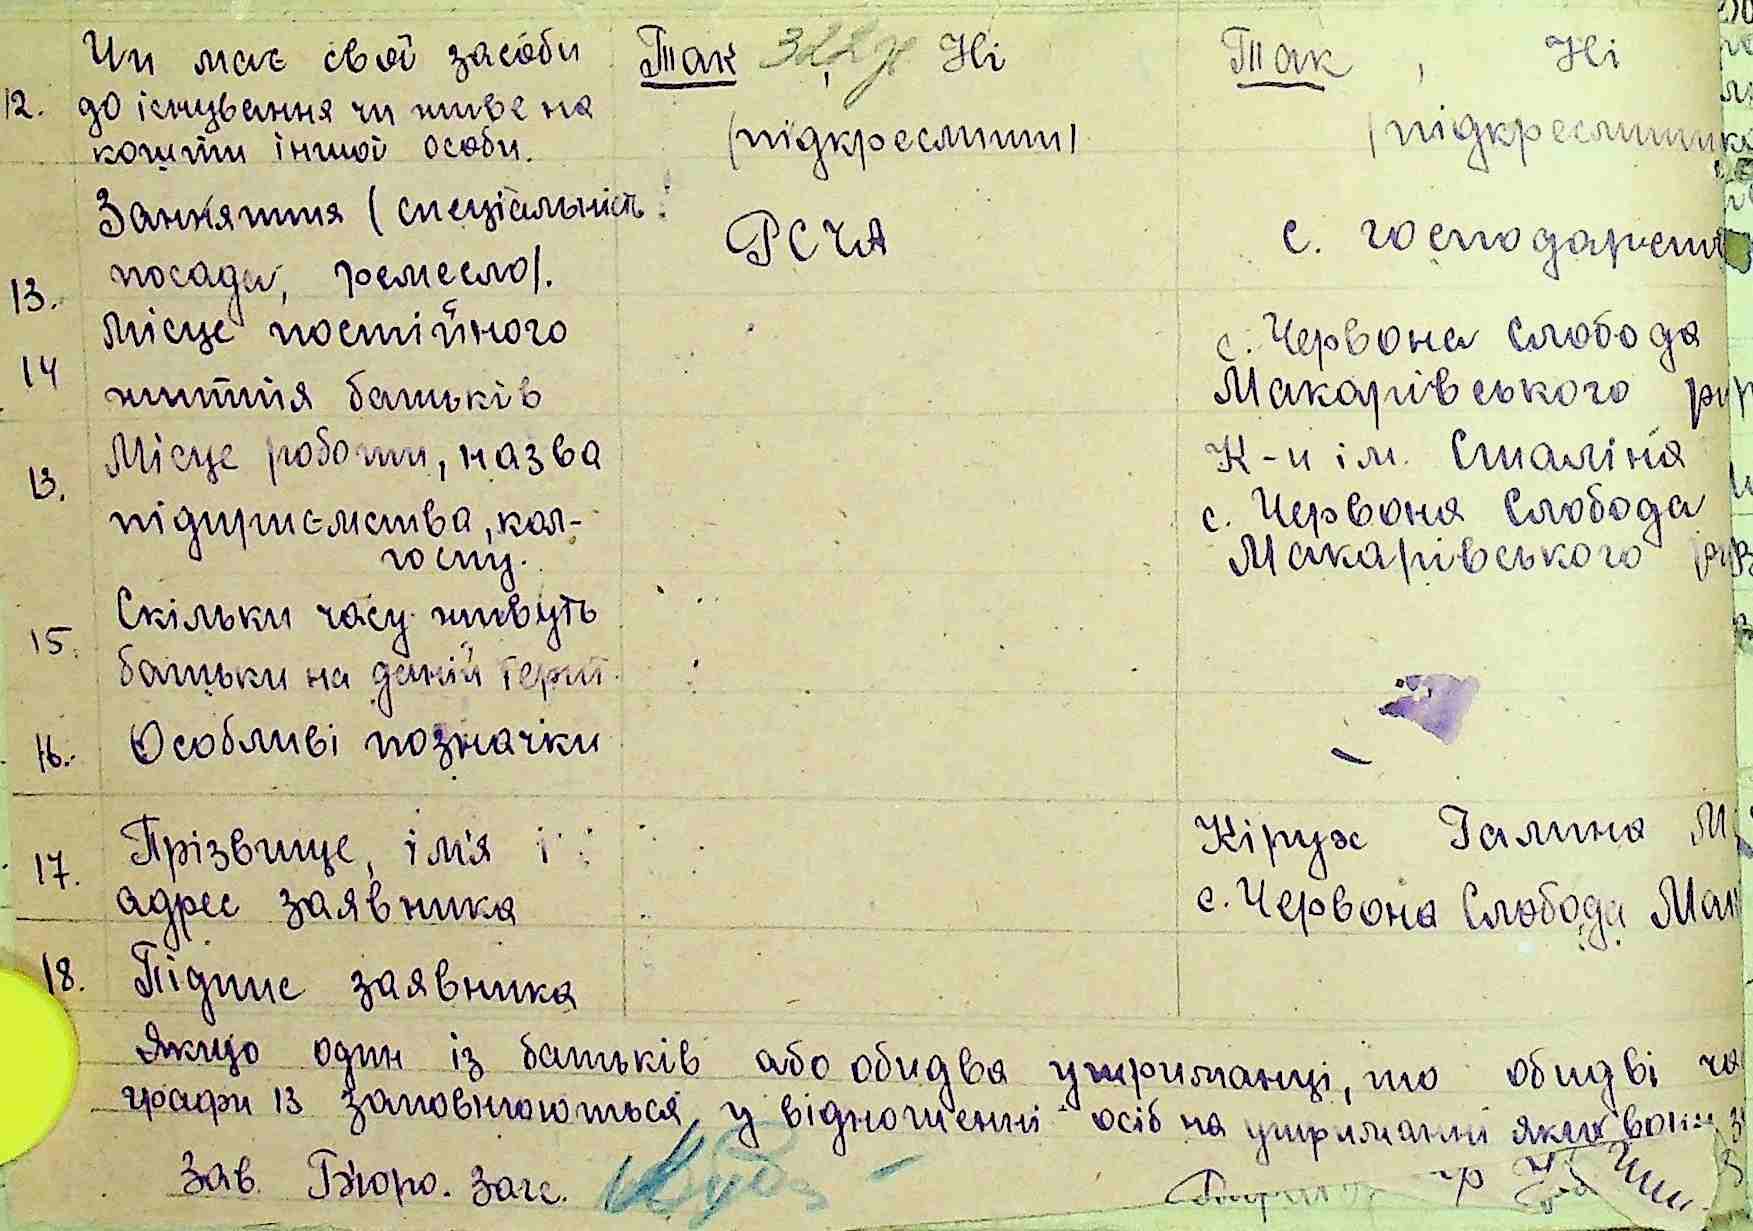 Чи має свої засоби Так Ні Так , Ні
12. до існування чи живе на (підкреслити) (підкреслити
кошти іншої особи.
Заняття (спеціальність
посада, ремесло). РСЧА с. господарст
13.
Місце постійного с. Червона Слобода
14 життя батьків Макарівського
13. Місце роботи, назва К-п ім. Сталіна
підприємства, кол- с. Червоня Слобода
госпу. Макарівського
Скільки часу живуть
15. батьки на даній терит.
16. Особливі позначки
17. Прізвище, ім'я і Кірух Галина М
адрес заявника с. Червона Слобода Мак
18. Підпис заявника
Якщо один із батьків або обидва утриманці, то обидві ча
графи 13 заповнюються у відношенні осіб на утриманні яких вони
Зав. Бюро. Загс.